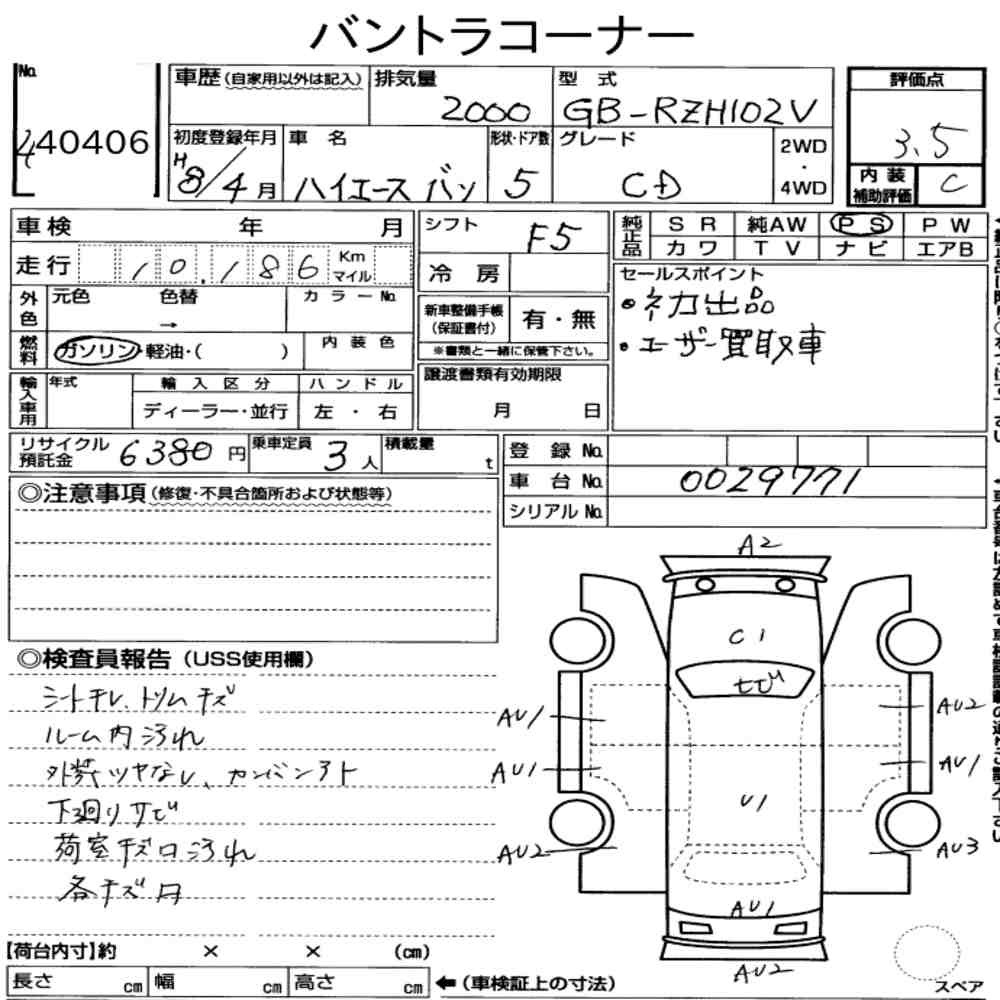 バントラコーナー
No.
440406
車歴(自家用以外は記入)
排気量
2000
型 式
GB-RZH102V
評価点
3.5
初度登録年月
H8/4月
車 名
ハイエース バン
形状・ドア数
5
グレード
CD
2WD
・
4WD
内装
補助評価
C
車検 年 月
シフト
F5
純正品
SR 純AW PS PW
カワ TV ナビ エアB
走行 10,186 Km
マイル
冷房
セールスポイント
・ネカ出品
・ユーザー買取車
外色
元色 色替 カラーNo.
→
新車整備手帳
(保証書付)
有・無
※書類と一緒に保管下さい。
燃料
ガソリン・軽油・( )
内装色
輸入車用
年式
輸入区分 ハンドル
ディーラー・並行 左・右
譲渡書類有効期限
月 日
リサイクル
預託金
6380円
乗車定員
3人
積載量
t
登録No.
車台No.
0029771
シリアルNo.
◎注意事項(修復・不具合箇所および状態等)
◎検査員報告(USS使用欄)
シートキレ、トリムキズ
ルーム内汚れ
外装ツヤなし、カンバンアト
下廻りサビ
荷室キズ穴汚れ
各キズ凹
A2
C1
セビ
AU1
AU2
AU1
AU1
U1
AU2
AU3
AU1
AU2
【荷台内寸】約 × × (cm)
長さ cm 幅 cm 高さ cm
←(車検証上の寸法)
スペア